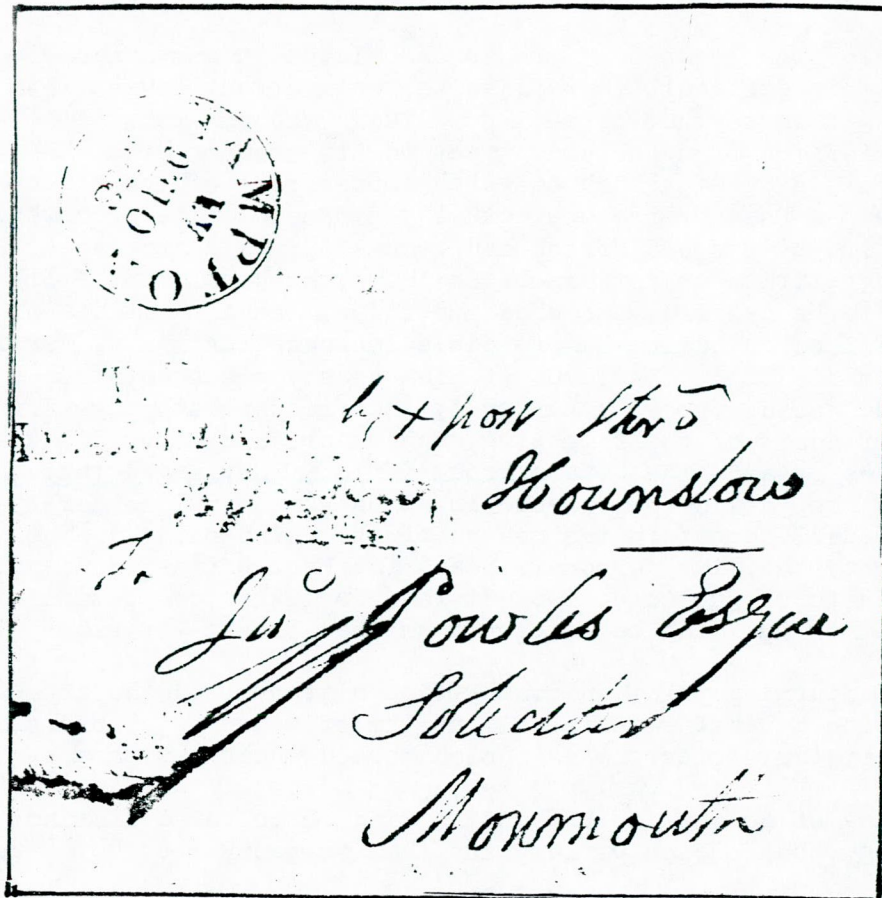 AMPTO
EV
10
T
X post thro
Hounslow
To
Jno Powles Esque
Solicitor
Monmouth